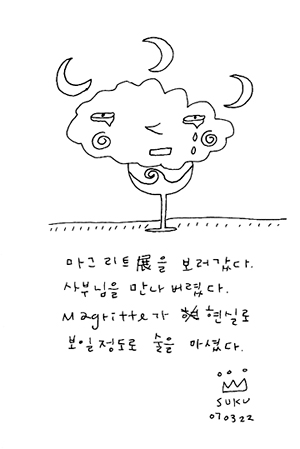 마그리트展을 보러갔다.
사부님을 만나버렸다.
Magritte가 현실로
보일정도로 술을 마셨다.
SUKU
070322